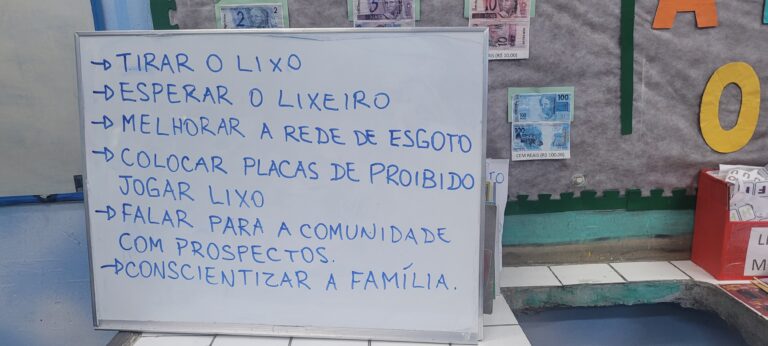 → TIRAR O LIXO
→ ESPERAR O LIXEIRO
→ MELHORAR A REDE DE ESGOTO
→ COLOCAR PLACAS DE PROIBIDO
JOGAR LIXO
→ FALAR PARA A COMUNIDADE
COM PROSPECTOS.
→ CONSCIENTIZAR A FAMÍLIA.
2
2
10
100
100
CEM REAIS (R$ 100,00)
O